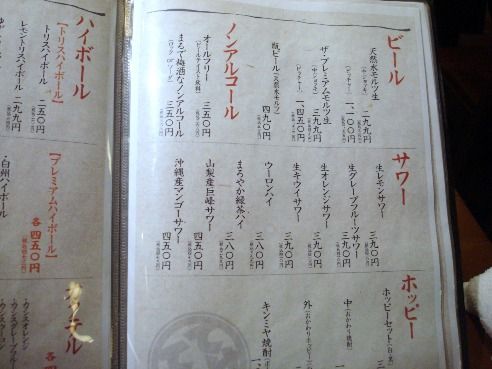 ビール
天然水モルツ生
(中ジョッキ) 二九九円
(ピッチャー) 一、一〇〇円
ザ・プレミアムモルツ生
(中ジョッキ) 三九九円
(ピッチャー) 一、四五〇円
瓶ビール(天然水モルツ) 四九〇円
ノンアルコール
オールフリー
(ビールテイスト飲料) 三五〇円
まるで梅酒なノンアルコール
(ロック or ソーダ) 三五〇円
サワー
生レモンサワー 三九〇円
生グレープフルーツサワー 三九〇円
生オレンジサワー 三九〇円
生キウイサワー 三九〇円
ウーロンハイ 三八〇円
まろやか緑茶ハイ 三八〇円
山梨産巨峰サワー 四五〇円
沖縄産マンゴーサワー 四五〇円
ホッピー
ホッピーセット(白・黒)
中(おかわり焼酎)
外(おかわりホッピー)
キンミヤ焼酎
ハイボール
【トリスハイボール】
トリスハイボール 二五〇円
レモントリスハイボール 二九九円
【プレミアムハイボール】
各 四五〇円
・白州ハイボール
カクテル
各4
・ウンスオレンジ